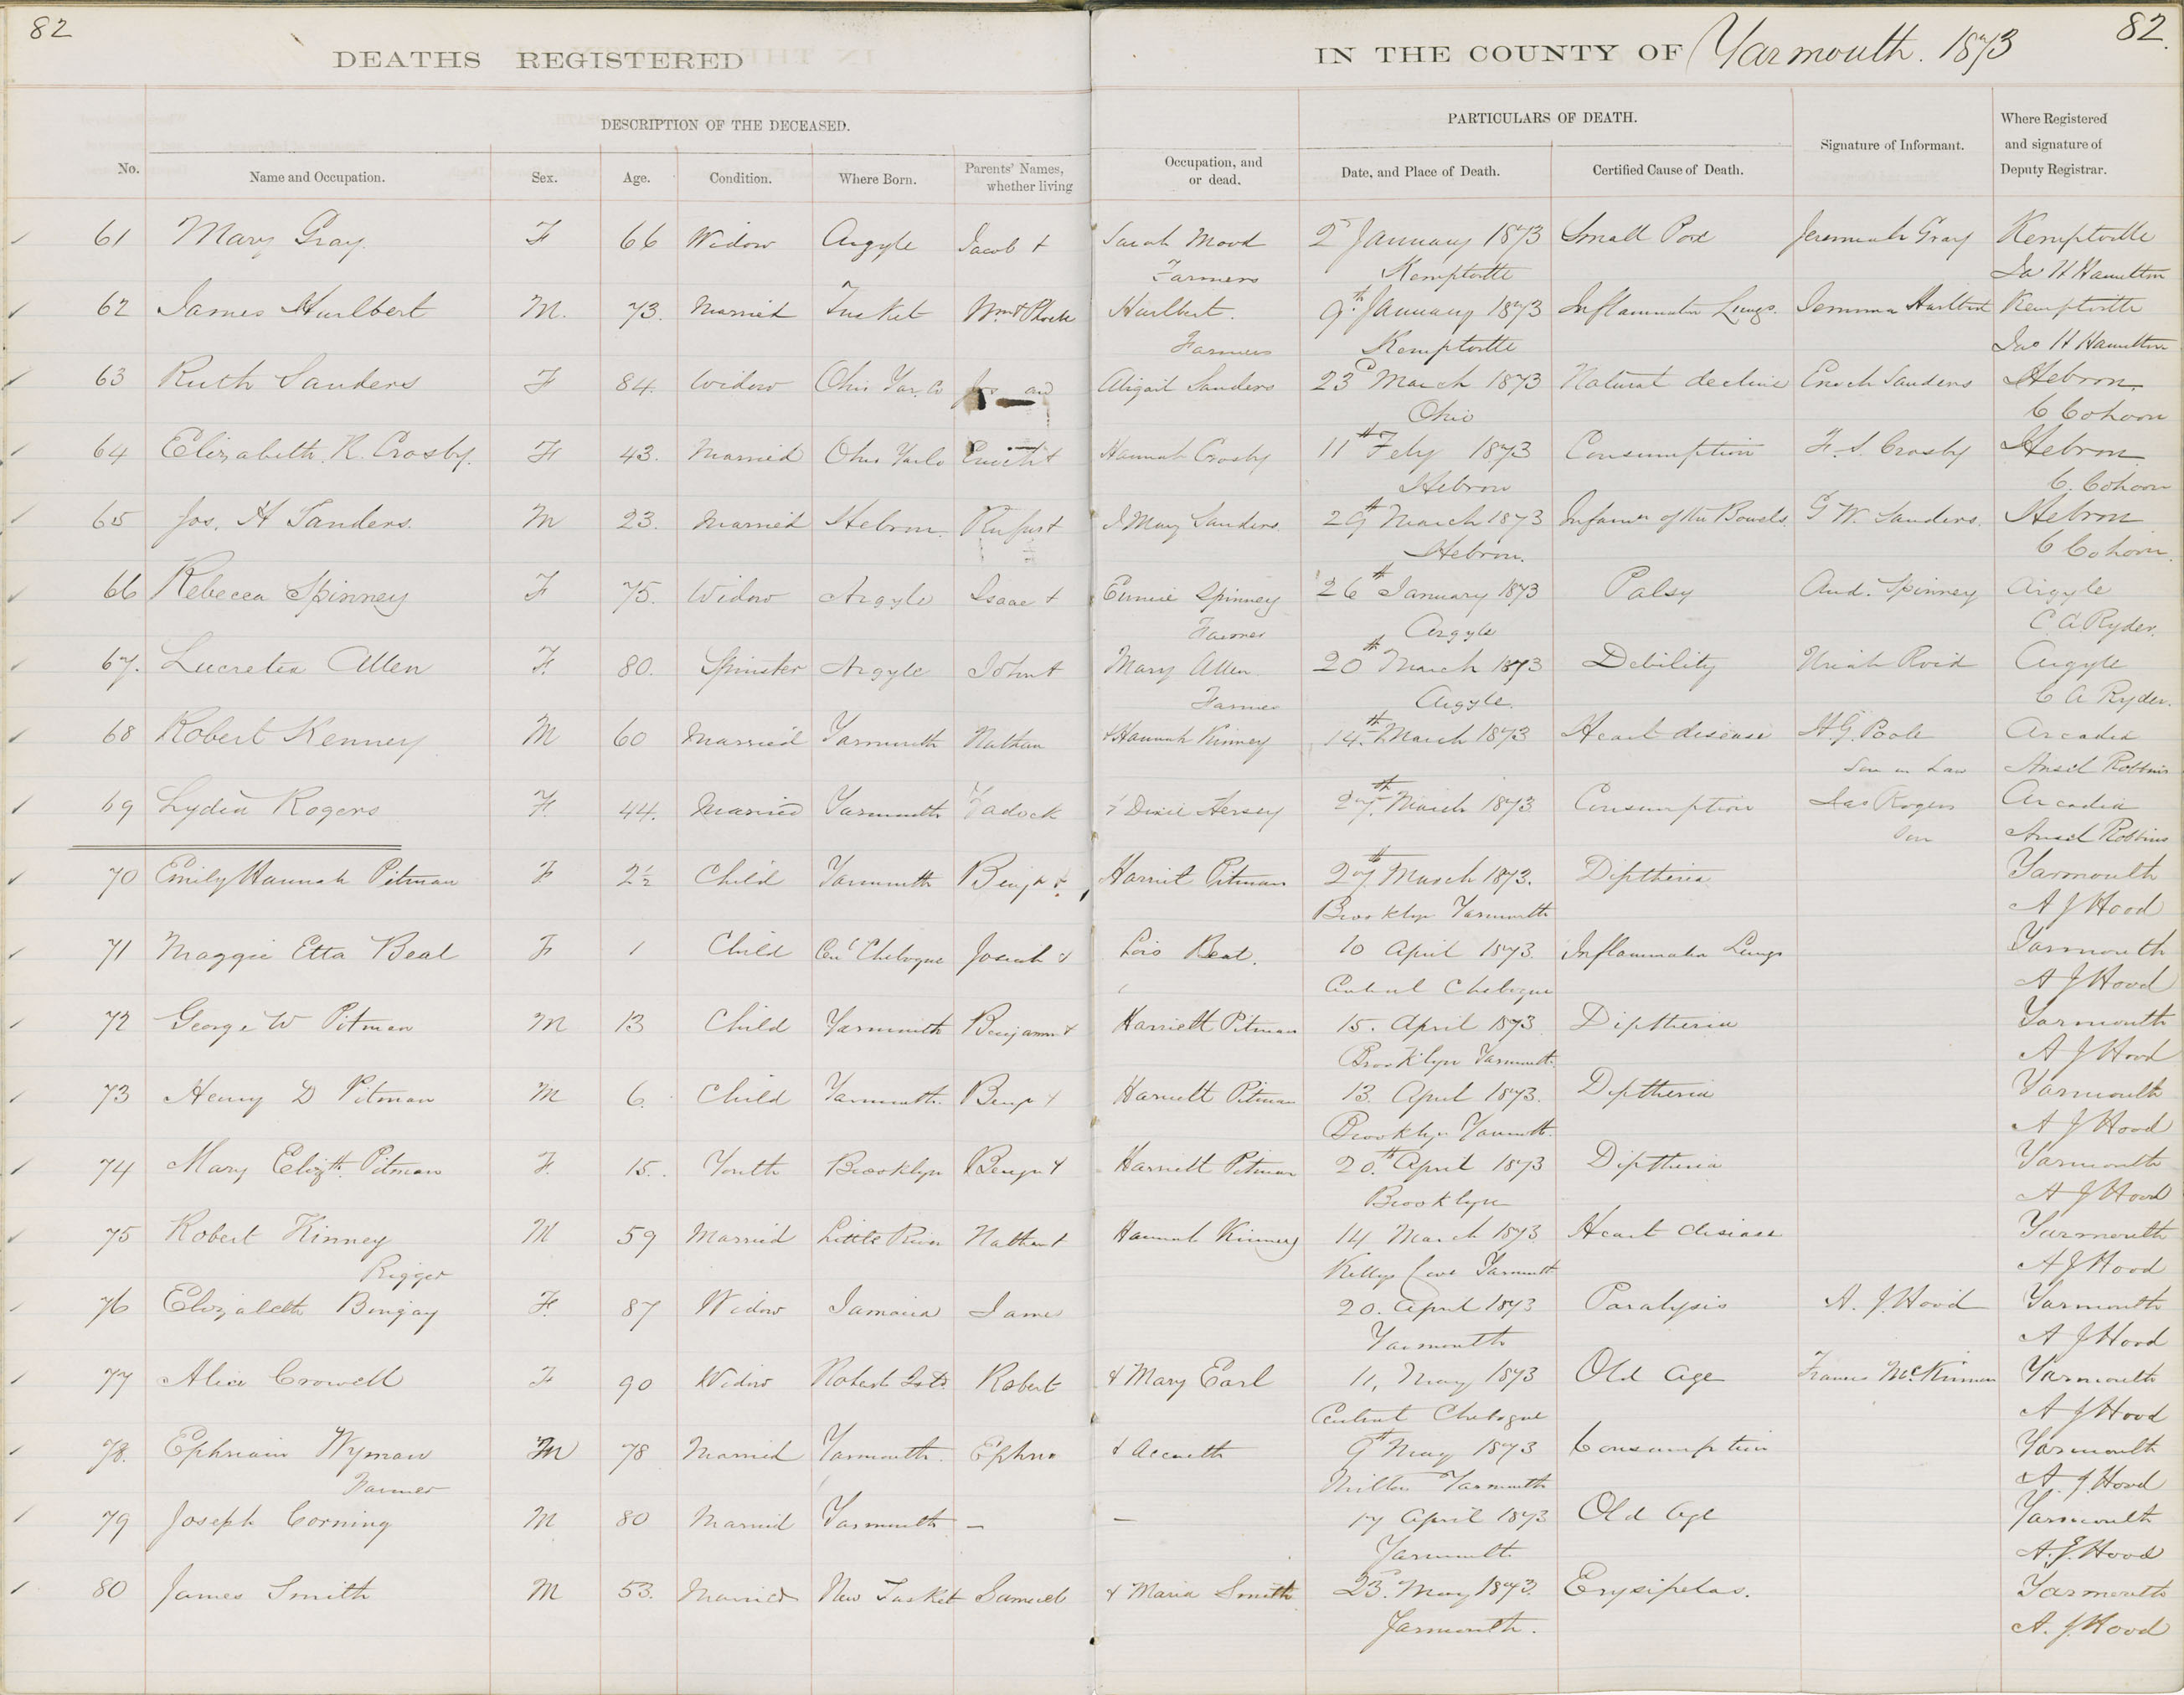 82
DEATHS REGISTERED IN THE COUNTY OF Yarmouth. 1873 82.
DESCRIPTION OF THE DECEASED. PARTICULARS OF DEATH.
No. Name and Occupation. Sex. Age. Condition. Where Born. Parents' Names, whether living Occupation, and or dead. Date, and Place of Death. Certified Cause of Death. Signature of Informant. Where Registered and signature of Deputy Registrar.
61 Mary Gray. F 66 Widow Argyle Jacob + Sarah Mood 2d January 1873 Small Pox Jeremiah Gray Kemptville
Farmers Kemptville Jno H Hamilton
62 James Hurlbert M. 73. Married Tusket Wm + Phoebe Hurlbert. 9th January 1873 Inflammation Lungs. Jemima Hurlbert Kemptville
Farmers Kemptville Jno H Hamilton
63 Ruth Sanders F 84. Widow Ohio Yar. Co and Abigail Sanders 23d March 1873 Natural decline Enoch Sanders Hebron
Ohio C Cohoon
64 Elizabeth R. Crosby. F 43. Married Ohio Yar Co Hannah Crosby 11th Feby 1873 Consumption F. S. Crosby Hebron
Hebron C. Cohoon
65 Jos. H Sanders. M 23. Married Hebron Rufus + Mary Sanders 29th March 1873 of the Bowels. G W. Sanders. Hebron
Hebron. C Cohoon
66 Rebecca Spinney F 75. Widow Argyle Isaac + Eunice Spinney 26th January 1873 Palsy And. Spinney Argyle
Farmer Argyle C. A Ryder.
67. Lucretia Allen F. 80. Spinster Argyle John + Mary Allen 20th March 1873 Debility Uriah Argyle
Farmer Argyle. C A Ryder.
68 Robert Kenney M 60 Married Yarmouth Nathan + Hannah Kinney 14th March 1873 Heart disease H. G. Poole Arcadia
Son in Law Ansel Robbins
69 Lydia Rogers F. 44. Married Yarmouth Zadock + Hersey 27th March 1873 Consumption Rogers Arcadia
Son Ansel Robbins
70 Emily Hannah Pitman F 2½ Child Yarmouth Benjn + Harriet Pitman 27th March 1873. Diptheria Yarmouth
Brooklyn Yarmouth A J Hood
71 Maggie Etta Beal F 1 Child Cenl Chebogue Josiah + Lois Beal. 10 April 1873 Inflammation Lungs Yarmouth
Central Chebogue A J Hood
72 George W Pitman M 13 Child Yarmouth Benjamin + Harriett Pitman 15. April 1873 Diptheria Yarmouth
Brooklyn Yarmouth A J Hood
73 Henry D Pitman M 6. Child Yarmouth Benjn + Harriett Pitman 13. April 1873. Diptheria Yarmouth
Brooklyn Yarmouth A J Hood
74 Mary Elizth. Pitman F. 15. Youth Brooklyn Benjn + Harriett Pitman 20.th April 1873 Diptheria Yarmouth
Brooklyn A J Hood
75 Robert Kinney M 59 Married Little River Nathan + Hannah Kinney 14 March 1873 Heart disease Yarmouth
Rigger Kellys Cove Yarmouth A J Hood
76 Elizabeth Bingay F. 87 Widow Jamaica James 20. April 1873 Paralysis A. J. Hood Yarmouth
Yarmouth A J Hood
77 Alice Crowell F 90 Widow Robert + Mary Earl 11, May 1873 Old age Yarmouth
Central Chebogue A J Hood
78. Ephraim Wyman M 78 Married Yarmouth. 9th May 1873 Consumption Yarmouth
Farmer Milton Yarmouth A. J. Hood
79 Joseph Corning M 80 Married Yarmouth – – 17 April 1873 Old age Yarmouth
Yarmouth A. J. Hood
80 James Smith M 53. Married New Tusket Samuel + Maria Smith 23d. May 1873. Erysipelas. Yarmouth
Yarmouth. A. J. Hood